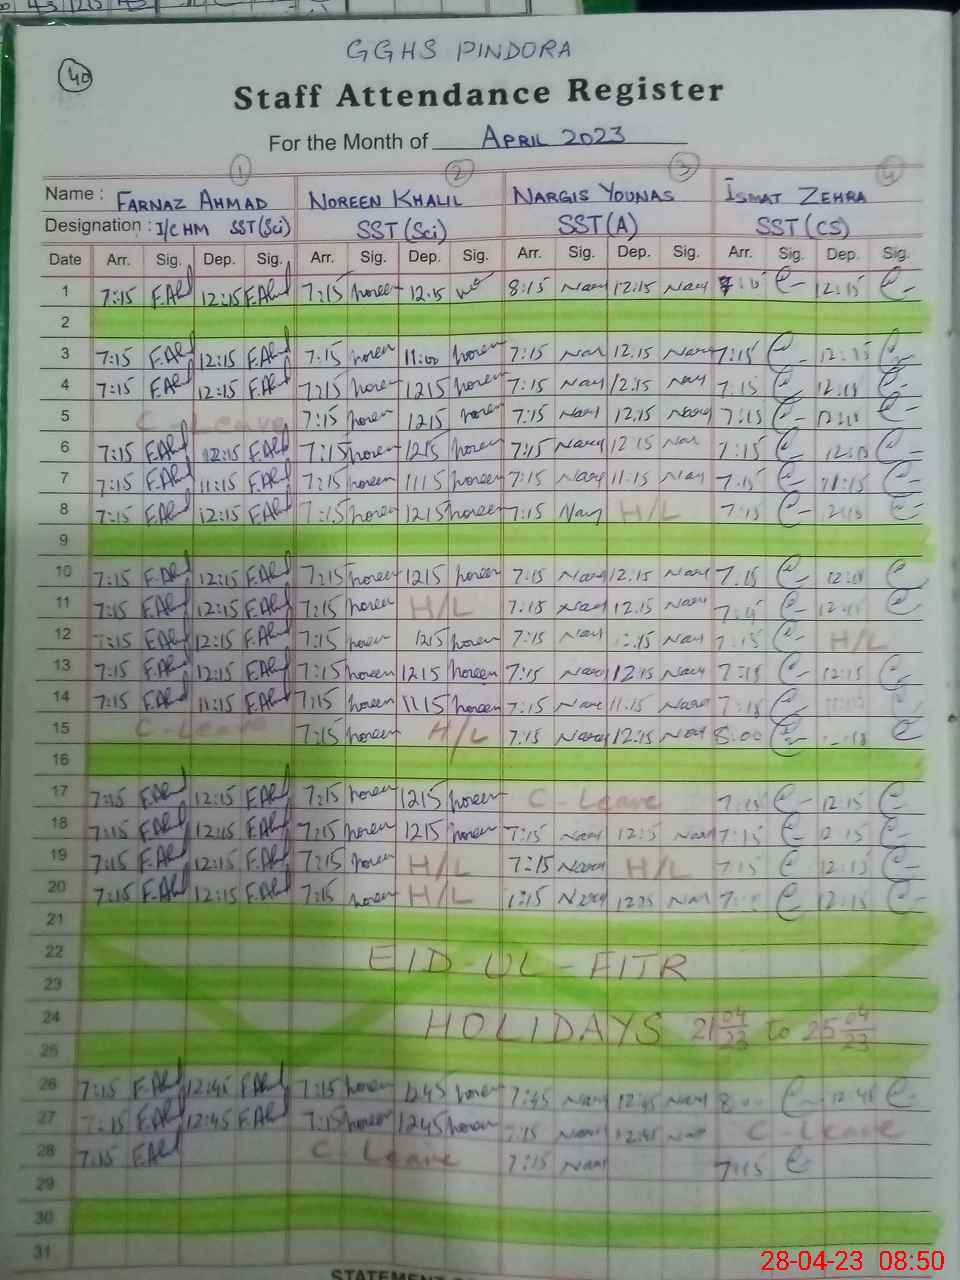 GGHS PINDORA
40
Staff Attendance Register
For the Month of APRIL 2023
1 2 3 4
Name : FARNAZ AHMAD NOREEN KHALIL NARGIS YOUNAS ISMAT ZEHRA
Designation : I/C HM SST(Sci) SST(Sci) SST(A) SST(CS)
Date Arr. Sig. Dep. Sig. Arr. Sig. Dep. Sig. Arr. Sig. Dep. Sig. Arr. Sig. Dep. Sig.
1 7:15 F.Ahd 12:15 F.Ahd 7:15 noreen 12:15 8:15 Narg 12:15 Narg 12:15
2
3 7:15 F.Ahd 12:15 F.Ahd 7:15 noreen 11:00 noreen 7:15 Nar 12:15 Narg 7:15 12:15
4 7:15 F.Ahd 12:15 F.Ahd 7:15 noreen 1215 noreen 7:15 Narg 12:15 Narg 7:15 12:15
5 C-Leave 7:15 noreen 1215 noreen 7:15 Narg 12:15 Narg 7:15
6 7:15 F.Ahd 12:15 F.Ahd 7:15 noreen 1215 noreen 7:15 Narg 12:15 Nar 7:15 12:15
7 7:15 F.Ahd 11:15 F.Ahd 7:15 noreen 1115 noreen 7:15 Narg 11:15 Narg 7:15 11:15
8 7:15 F.Ahd 12:15 F.Ahd 7:15 noreen 1215 noreen 7:15 Narg H/L 7:15
9
10 7:15 F.Ahd 12:15 F.Ahd 7:15 noreen 1215 noreen 7:15 Narg 12:15 Narg 7:15
11 7:15 F.Ahd 12:15 F.Ahd 7:15 noreen H/L 7:15 Narg 12:15 Narg
12 7:15 F.Ahd 12:15 F.Ahd 7:15 noreen 1215 noreen 7:15 Narg Narg 7:15 H/L
13 7:15 F.Ahd 12:15 F.Ahd 7:15 noreen 1215 noreen 7:15 Narg 12:15 Narg 7:15 12:15
14 7:15 F.Ahd 11:15 F.Ahd 7:15 noreen 1115 noreen 7:15 Narg 11:15 Narg 7:15
15 C-Leave 7:15 noreen H/L 7:15 Narg 12:15 Narg 8:00
16
17 7:15 F.Ahd 12:15 F.Ahd 7:15 noreen 1215 noreen C-Leave 12:15
18 7:15 F.Ahd 12:15 F.Ahd 7:15 noreen 1215 noreen 7:15 Narg Narg 7:15
19 7:15 F.Ahd 12:15 F.Ahd 7:15 noreen H/L 7:15 Narg H/L 7:15 12:15
20 7:15 F.Ahd 12:15 F.Ahd 7:15 noreen H/L Narg Nar 12:15
21
22 EID-UL-FITR
23
24 HOLIDAYS 21 04/23 to 25 04/23
25
26 7:15 F.Ahd 12:45 F.Ahd 7:15 noreen 1245 noreen 7:45 Narg 12:45 Narg 12:45
27 7:15 F.Ahd 12:45 F.Ahd 7:15 noreen 1245 noreen 7:15 Narg 12:45 Nar C-Leave
28 7:15 F.Ahd C-Leave 7:15 Nar 7:15
29
30
31
STATEMENT
28-04-23 08:50